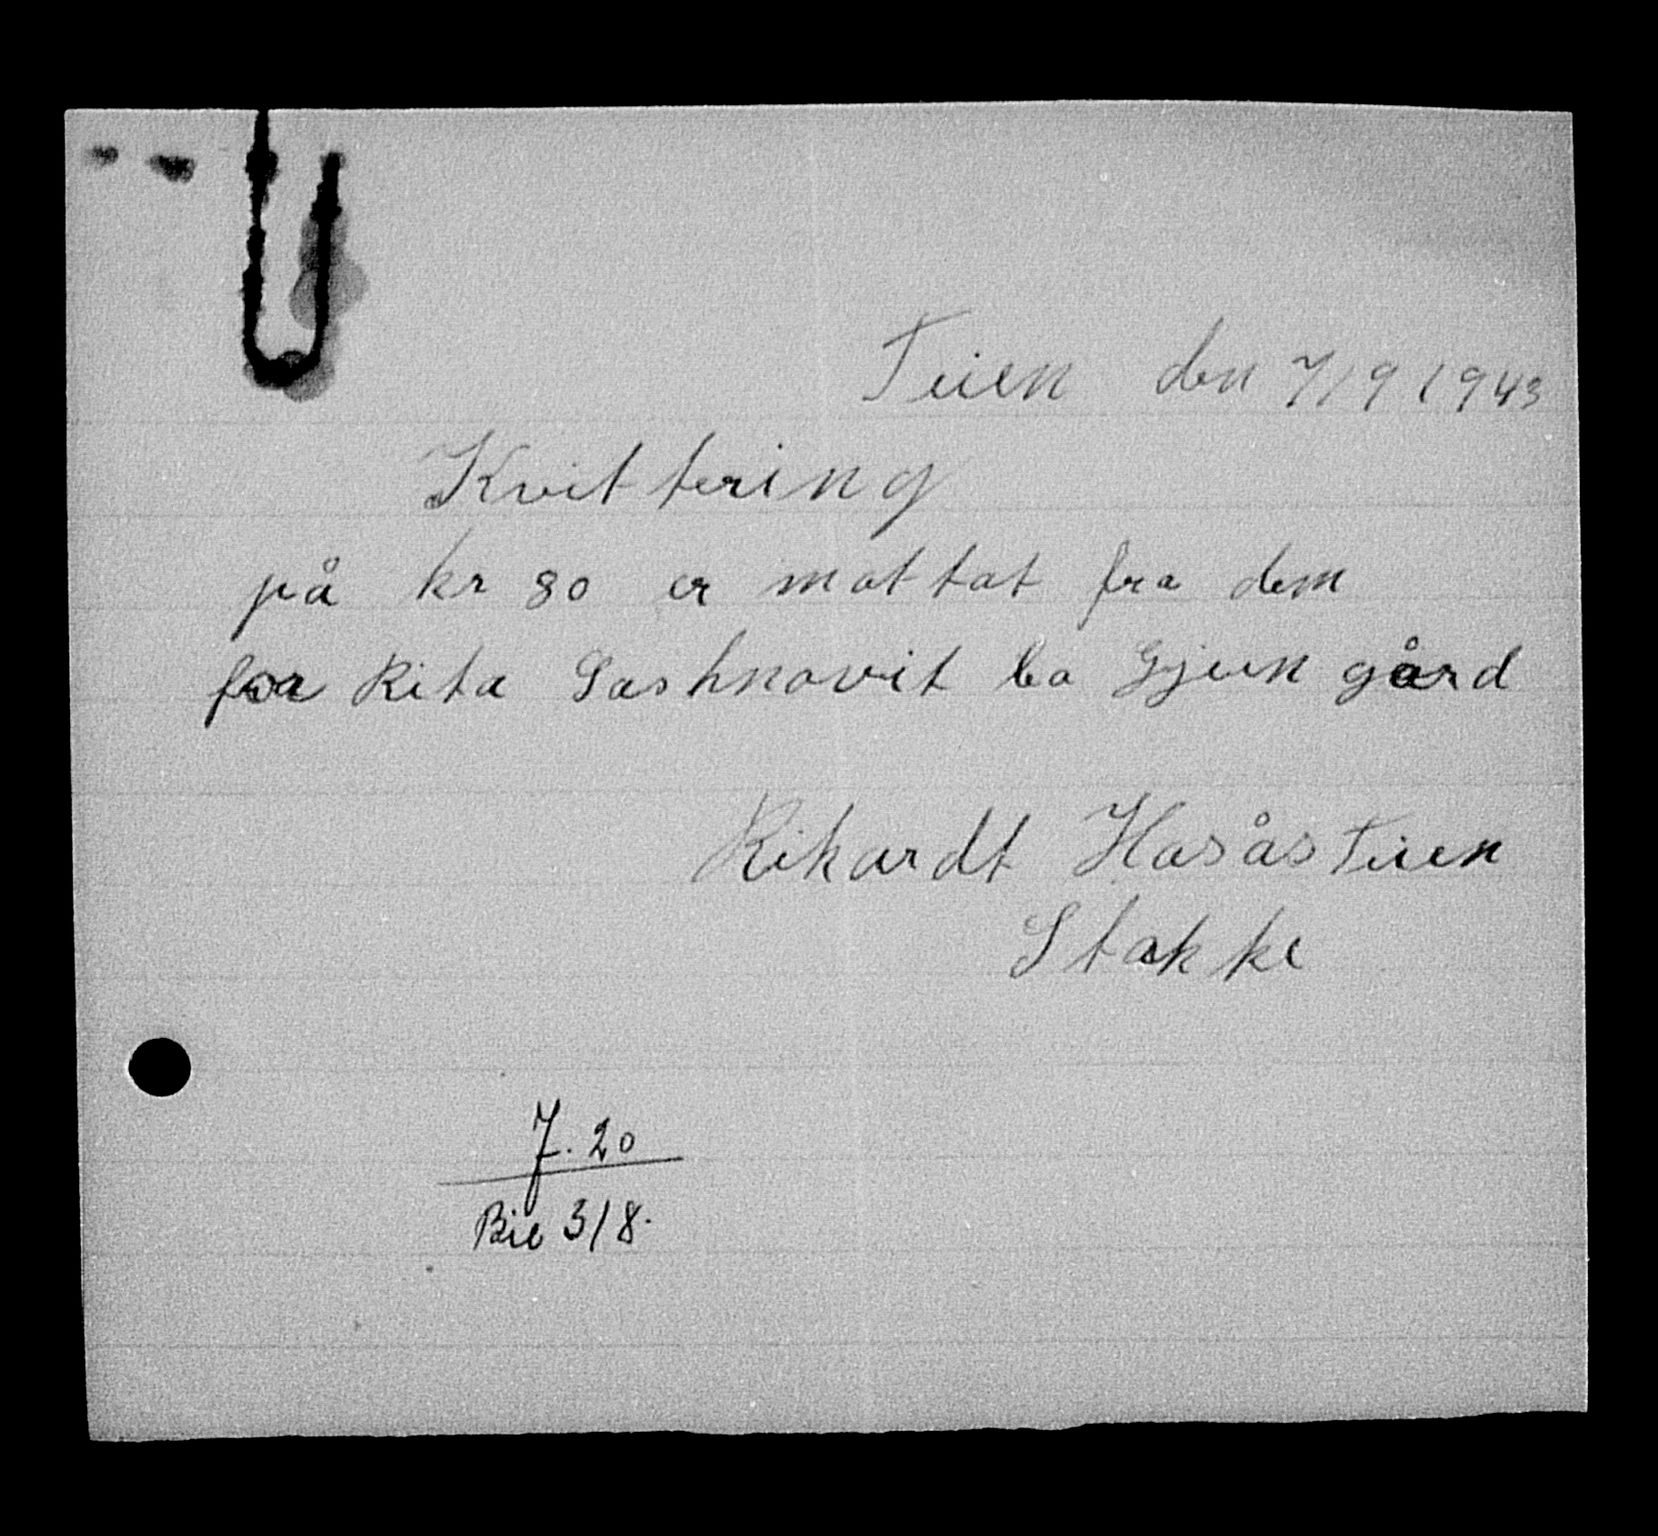 Teien den 7/9 1943
Kvittering
på kr 80 er mottat fra dem
fra Rita Sashnovit bo Gjein gård
Rikardt Hasås Teien
Stokke
J. 20
Bil 3/8.